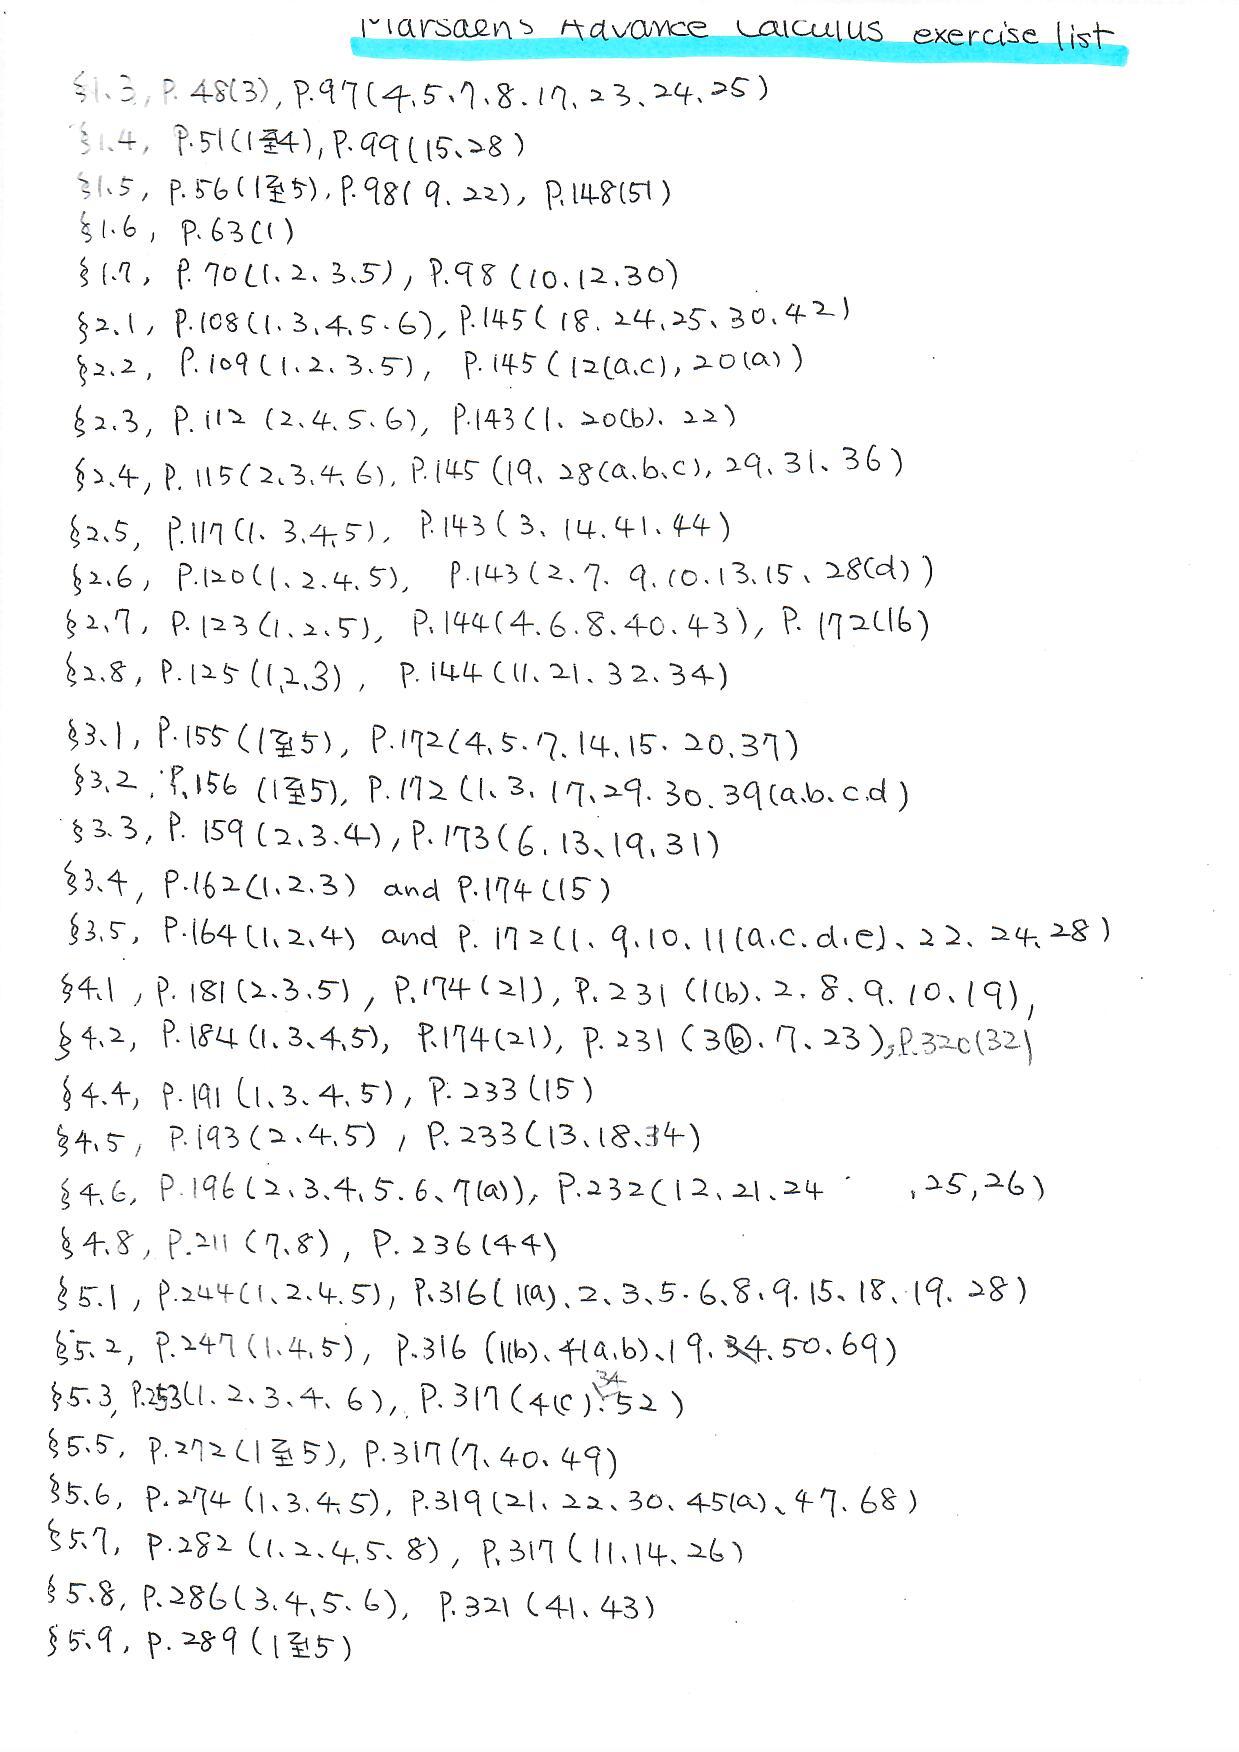 Marsdens Advance Calculus exercise list
§1.3, P.48(3), P.97(4、5、7、8、17、23、24、25)
§1.4, P.51(1至4), P.99(15、28)
§1.5, P.56(1至5), P.98(9、22), P.148(51)
§1.6, P.63(1)
§1.7, P.70(1、2、3、5), P.98(10、12、30)
§2.1, P.108(1、3、4、5、6), P.145(18、24、25、30、42)
§2.2, P.109(1、2、3、5), P.145(12(a、c), 20(a))
§2.3, P.112(2、4、5、6), P.143(1、20(b)、22)
§2.4, P.115(2、3、4、6), P.145(19、28(a、b、c), 29、31、36)
§2.5, P.117(1、3、4、5), P.143(3、14、41、44)
§2.6, P.120(1、2、4、5), P.143(2、7、9、10、13、15、28(d))
§2.7, P.123(1、2、5), P.144(4、6、8、40、43), P.172(16)
§2.8, P.125(1,2,3), P.144(11、21、32、34)
§3.1, P.155(1至5), P.172(4、5、7、14、15、20、37)
§3.2, P.156(1至5), P.172(1、3、17、29、30、39(a、b、c、d)
§3.3, P.159(2、3、4), P.173(6、13、19、31)
§3.4, P.162(1、2、3) and P.174(15)
§3.5, P.164(1、2、4) and P.172(1、9、10、11(a、c、d、e)、22、24、28)
§4.1, P.181(2、3、5), P.174(21), P.231(1(b)、2、8、9、10、19),
§4.2, P.184(1、3、4、5), P.174(21), P.231(3ⓑ、7、23), P.320(32)
§4.4, P.191(1、3、4、5), P.233(15)
§4.5, P.193(2、4、5), P.233(13、18、34)
§4.6, P.196(2、3、4、5、6、7(a)), P.232(12、21、24 ,25,26)
§4.8, P.211(7、8), P.236(44)
§5.1, P.244(1、2、4、5), P.316(1(a)、2、3、5、6、8、9、15、18、19、28)
§5.2, P.247(1、4、5), P.316(1(b)、4(a、b)、19、34、50、69)
§5.3, P.253(1、2、3、4、6), P.317(4(c)、34、52)
§5.5, P.272(1至5), P.317(7、40、49)
§5.6, P.274(1、3、4、5), P.319(21、22、30、45(a)、47、68)
§5.7, P.282(1、2、4、5、8), P.317(11、14、26)
§5.8, P.286(3、4、5、6), P.321(41、43)
§5.9, P.289(1至5)